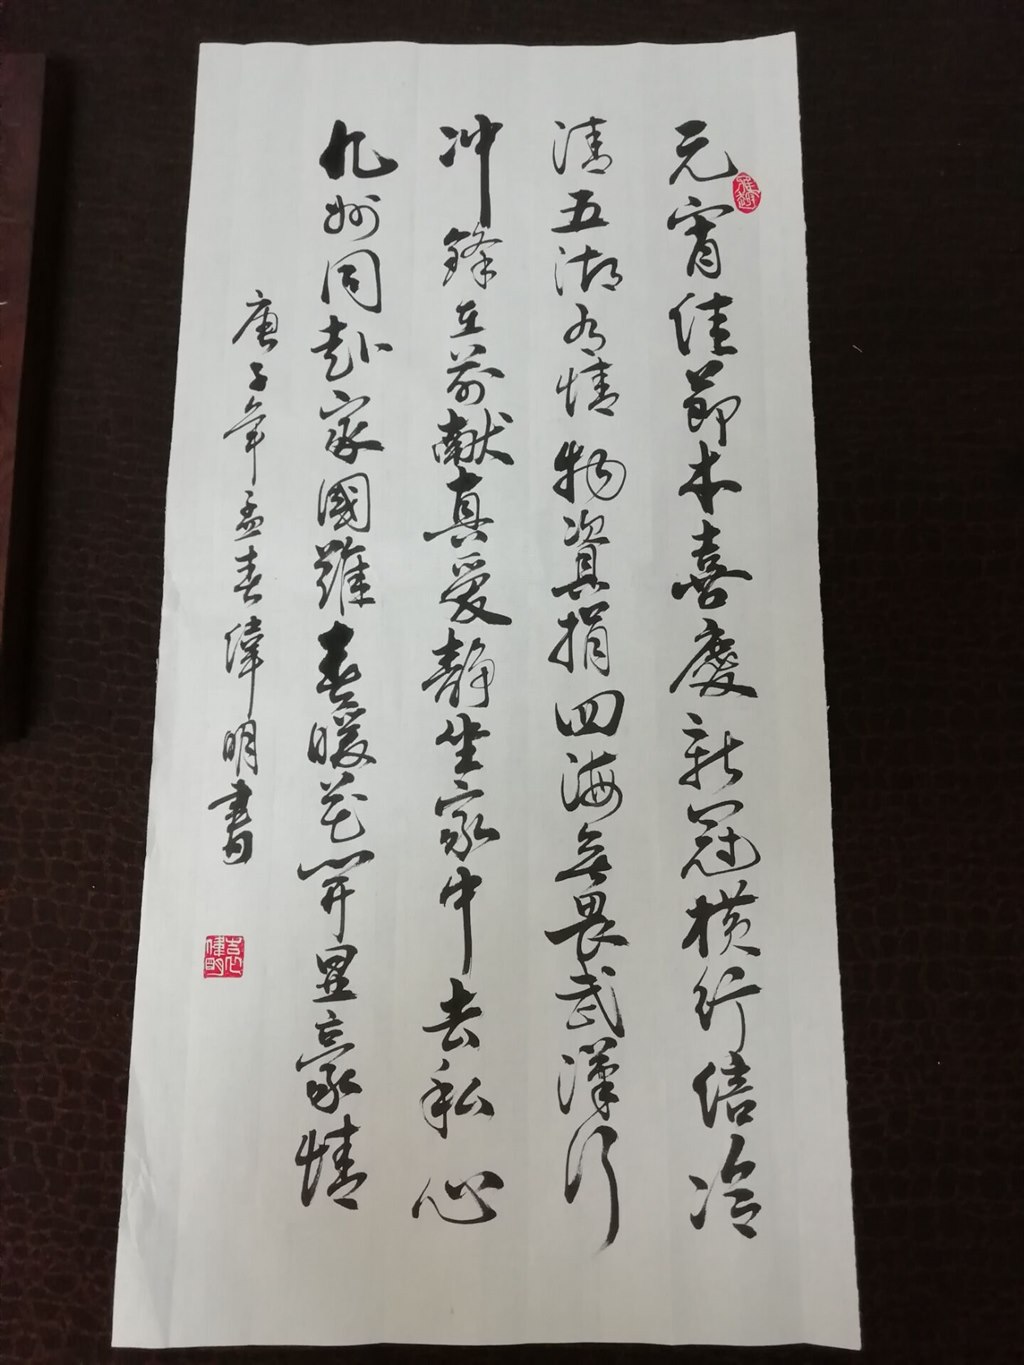 元宵佳節本喜慶新冠横行倍冷
清五湖有情物資捐四海無畏武漢行
冲鋒在前献真爱静坐家中去私心
九州同赴家國難春暖花開显豪情
庚子年孟春偉明書